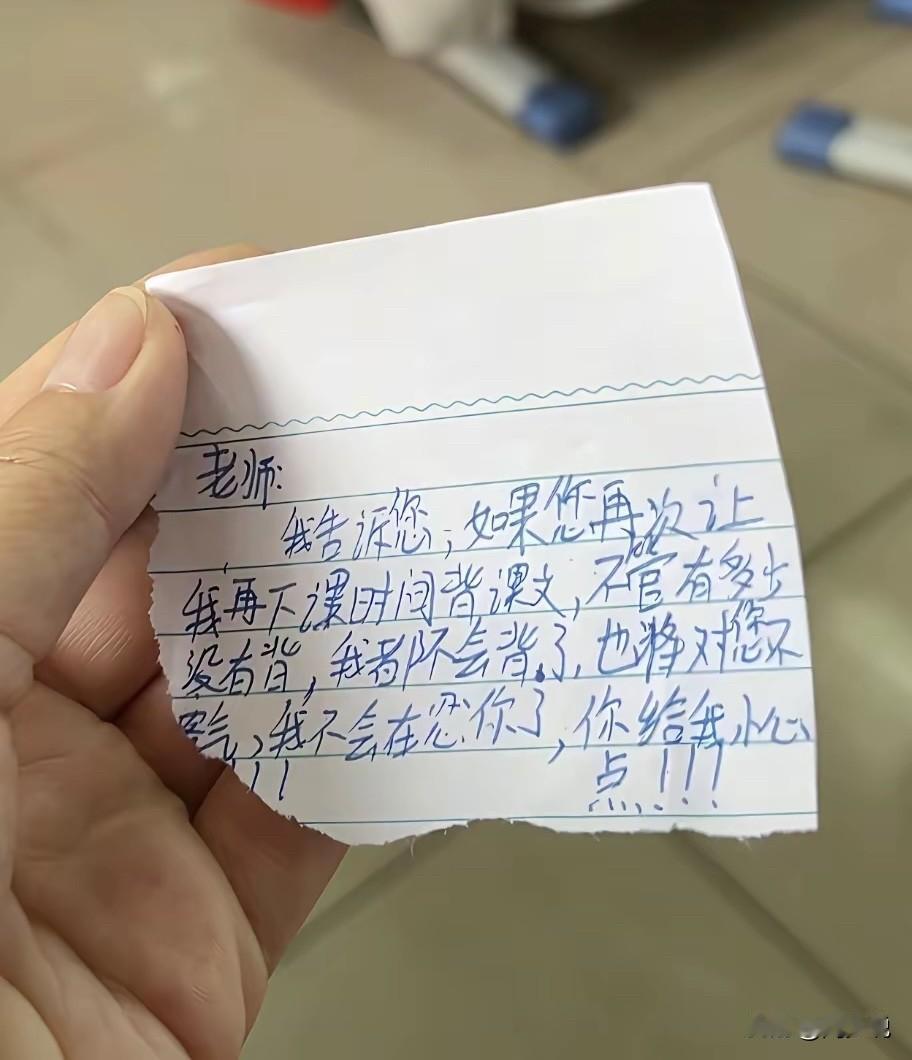 老师:
我告诉您,如果您再次让
我再下课时间背课文,不管有多少
没有背,我都不会背了,也将对您不
客气,我不会在忍你了,你给我小心
!!! 点!!!